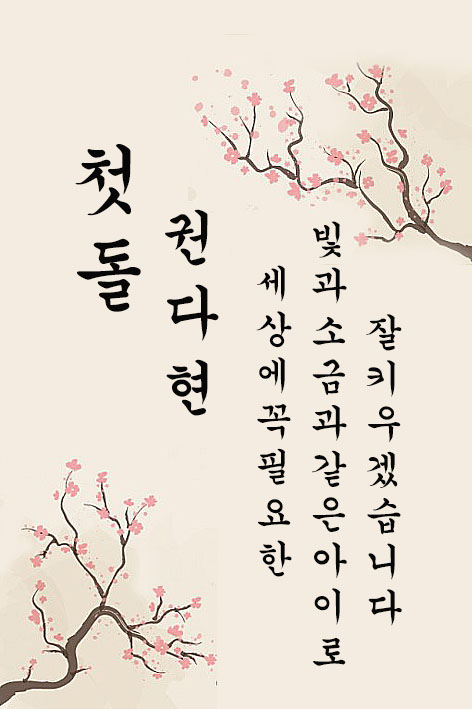 첫돌
권다현
세상에꼭필요한
빛과소금과같은아이로
잘키우겠습니다